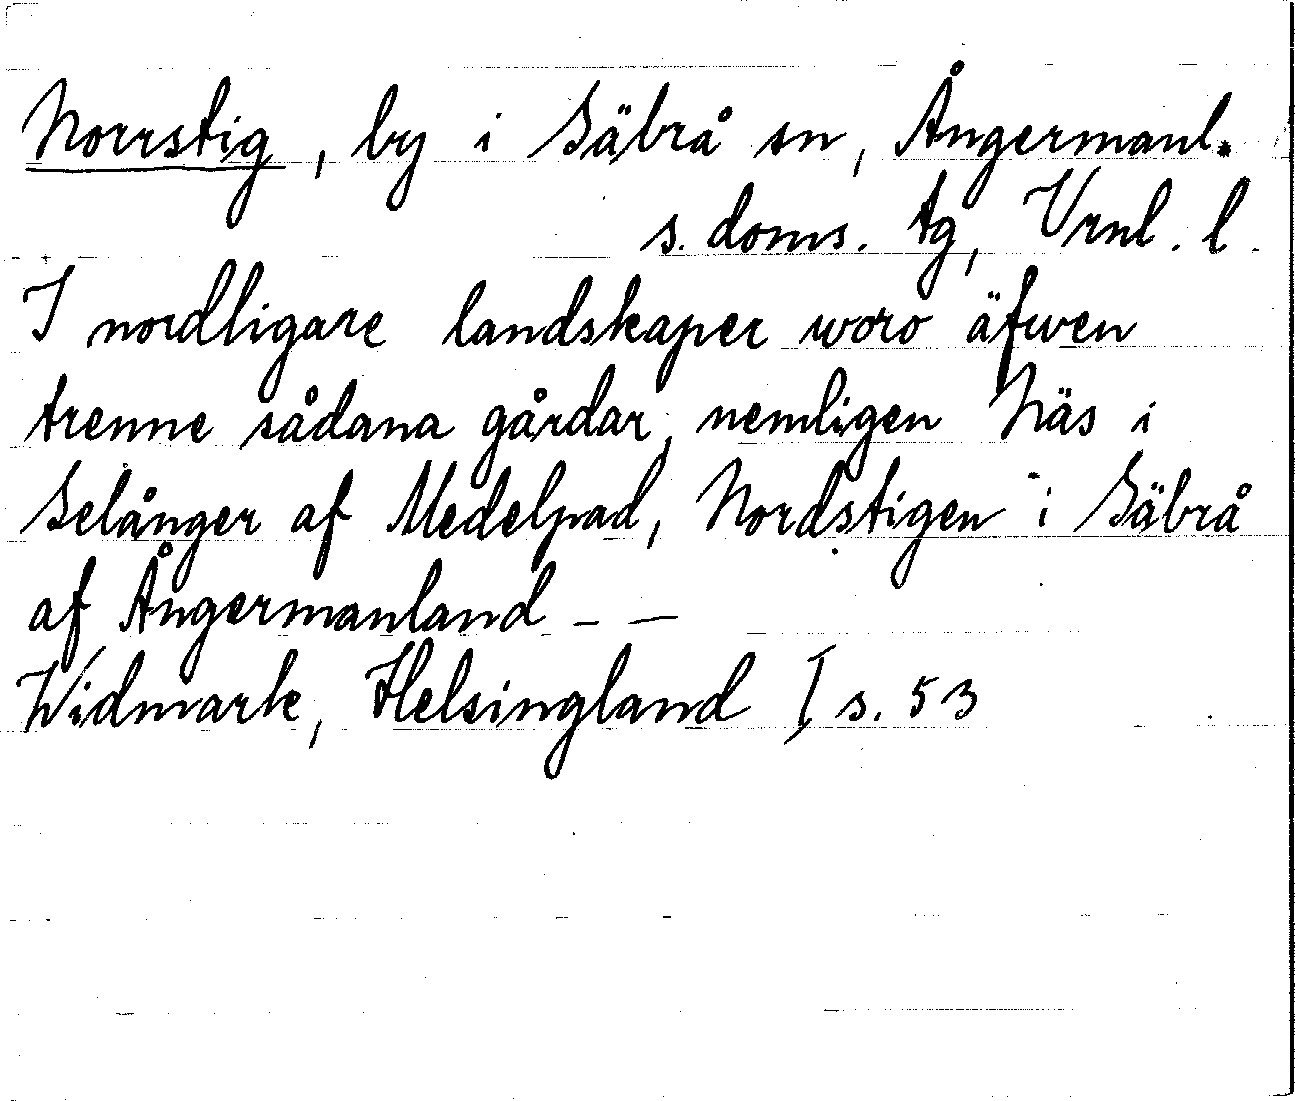 Norrstig, by i Säbrå sn, Ångermanl.
s. doms. tg, Vrnl. l.
I nordligare landskaper woro äfwen
trenne sådana gårdar, nemligen Näs i
Selånger af Medelpad, Nordstigen i Säbrå
af Ångermanland - —
Widmark, Helsingland I s. 53